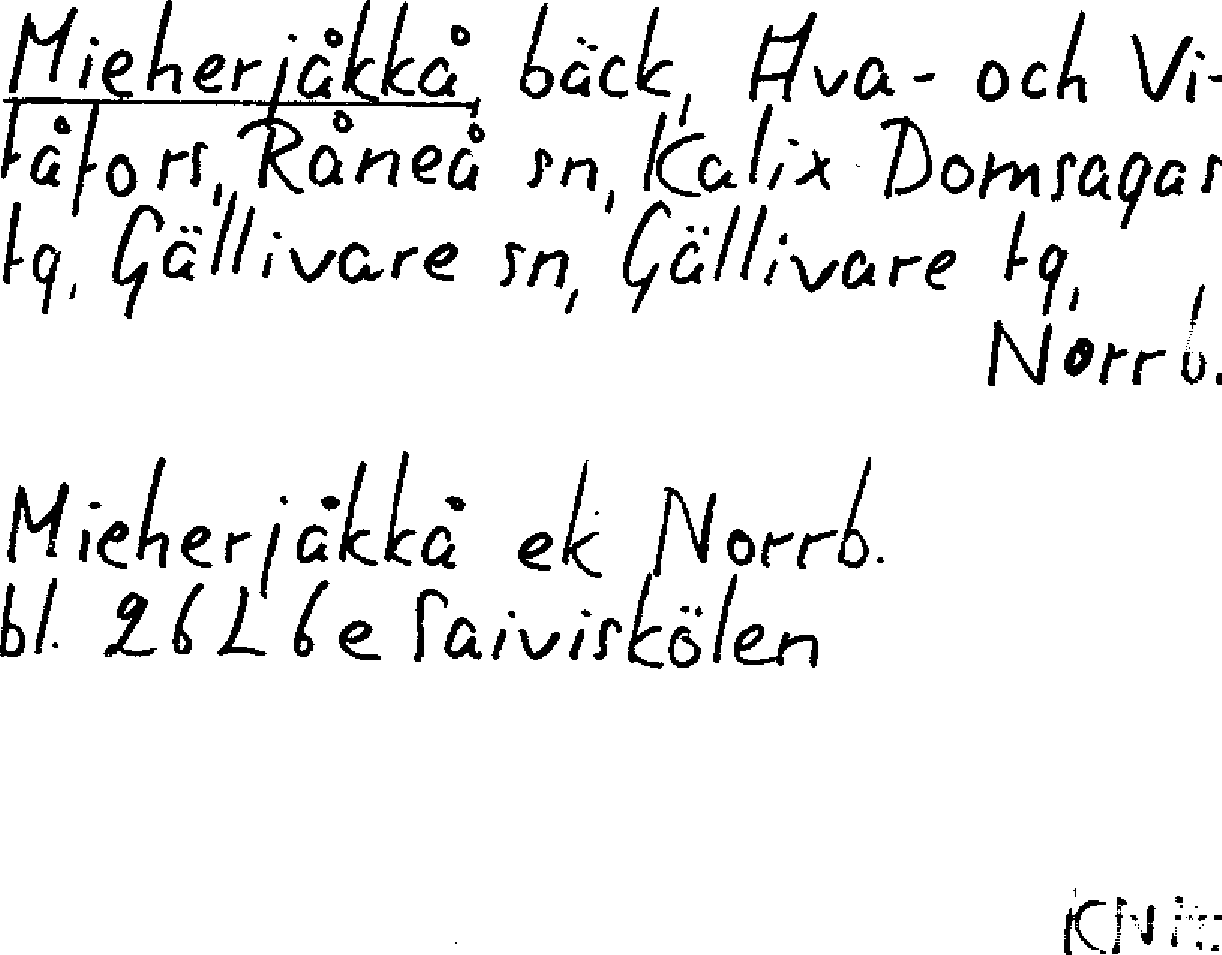 Mieherjåkkå, bäck, Ava- och Vi-
tåfors, Råneå sn, Kalix Domsagas
tg, Gällivare sn, Gällivare tg,
Norrb.
Mieherjåkkå ek Norrb.
bl. 26L 6e Saiviskölen